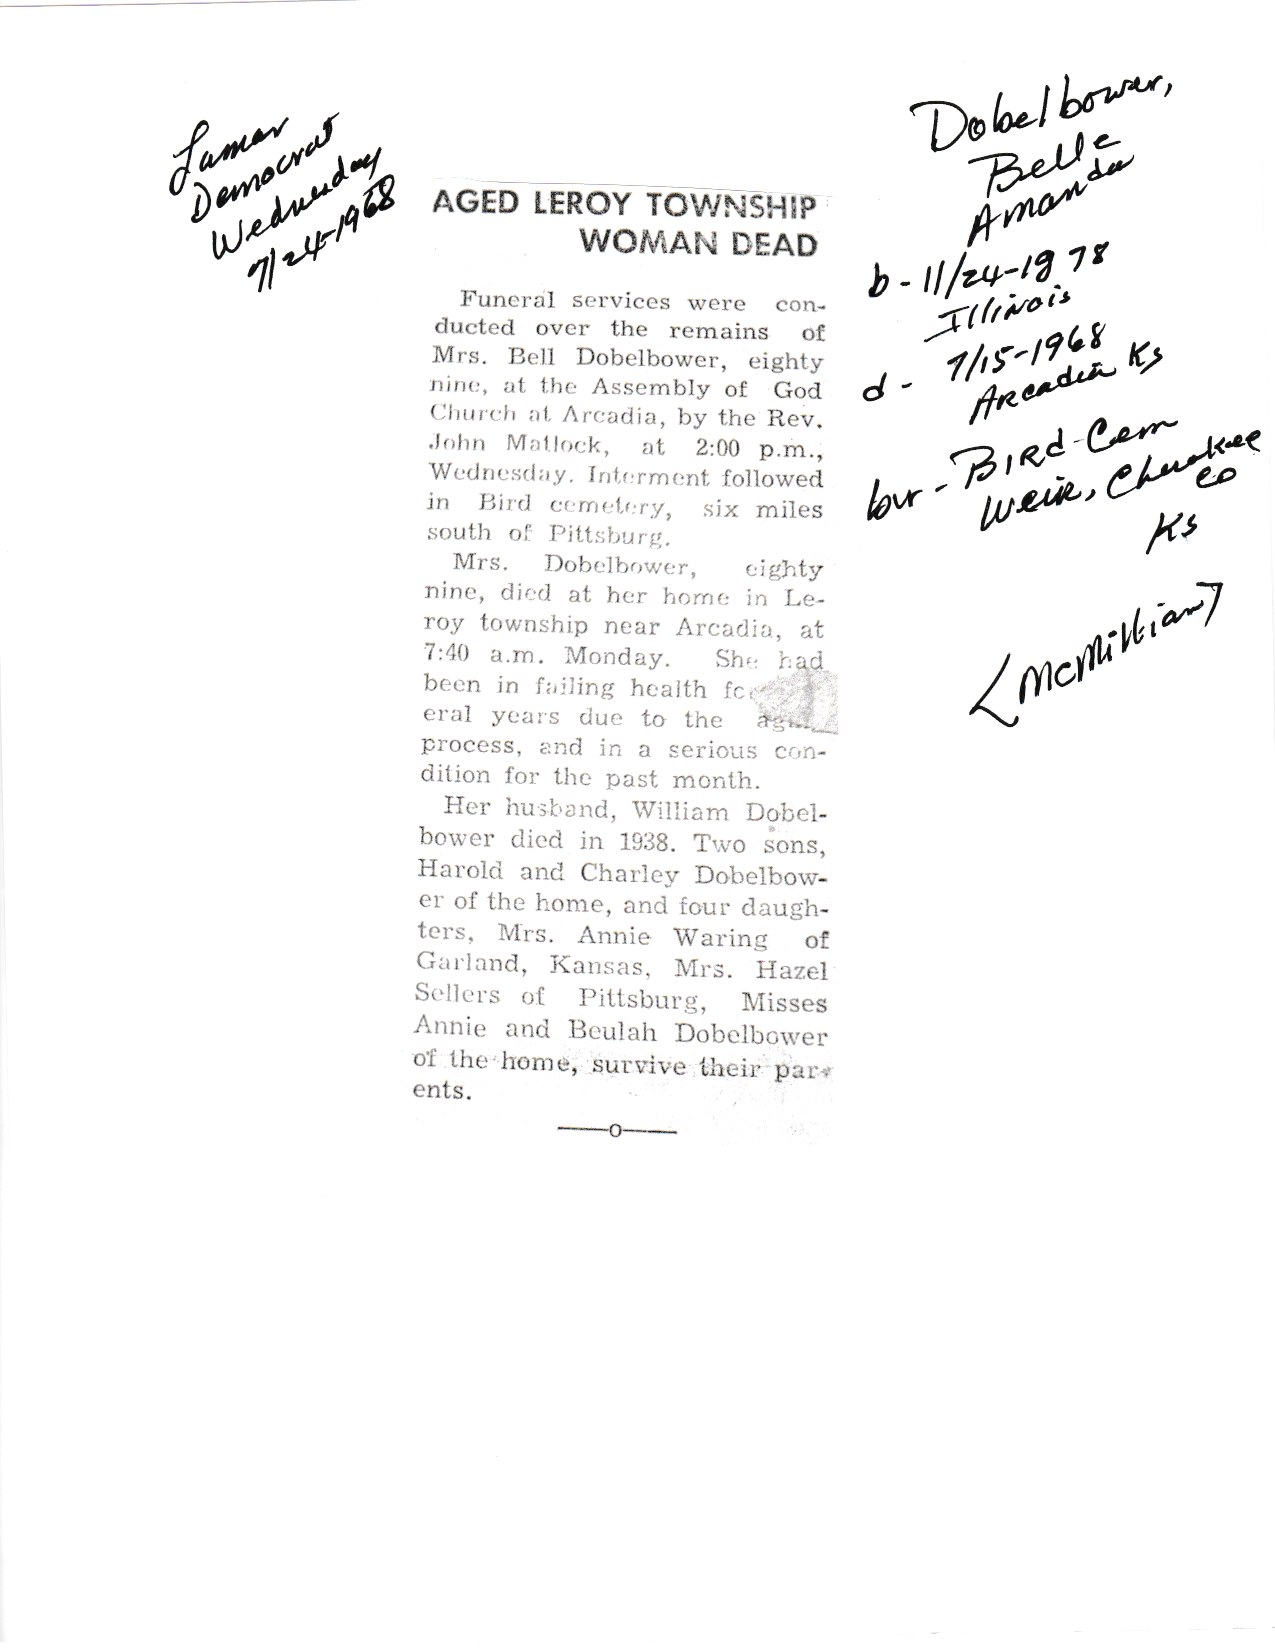 Lamar
Democrat
Wednesday
7/24-1968
AGED LEROY TOWNSHIP
WOMAN DEAD
Funeral services were con-
ducted over the remains of
Mrs. Bell Dobelbower, eighty
nine, at the Assembly of God
Church at Arcadia, by the Rev.
John Matlock, at 2:00 p.m.,
Wednesday. Interment followed
in Bird cemetery, six miles
south of Pittsburg.
Mrs. Dobelbower, eighty
nine, died at her home in Le-
roy township near Arcadia, at
7:40 a.m. Monday. She had
been in failing health
eral years due to the
process, and in a serious con-
dition for the past month.
Her husband, William Dobel-
bower died in 1938. Two sons,
Harold and Charley Dobelbow-
er of the home, and four daugh-
ters, Mrs. Annie Waring of
Garland, Kansas, Mrs. Hazel
Sellers of Pittsburg, Misses
Annie and Beulah Dobelbower
of the home, survive their par-
ents.
O
Dobelbower,
Belle
Amanda
b - 11/24-1978
Illinois
d - 7/15-1968
Arcadia Ks
bur - Bird-Cem
Weir, Cherokee
Co
Ks
(McMillian)